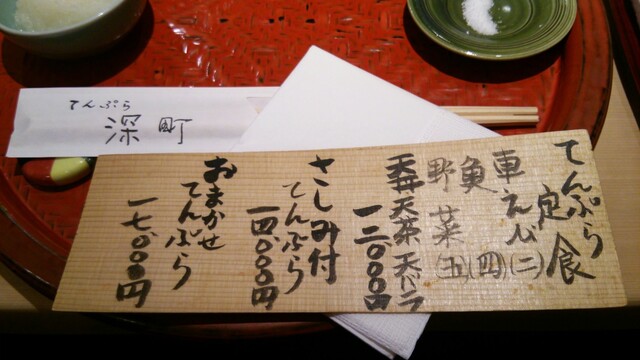 てんぷら
深町
てんぷら
定食
車えび(二)
魚(四)
野菜(五)
天丼 天茶 天バラ
一二〇〇〇円
さしみ付
てんぷら
一四〇〇〇円
おまかせ
てんぷら
一七〇〇〇円